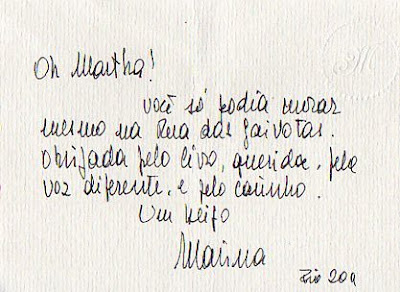 Oh Martha!
você só podia morar
mesmo na Rua das Gaivotas.
Obrigada pelo livro, querida, pela
voz diferente, e pelo carinho.
Um beijo
Marina
Rio